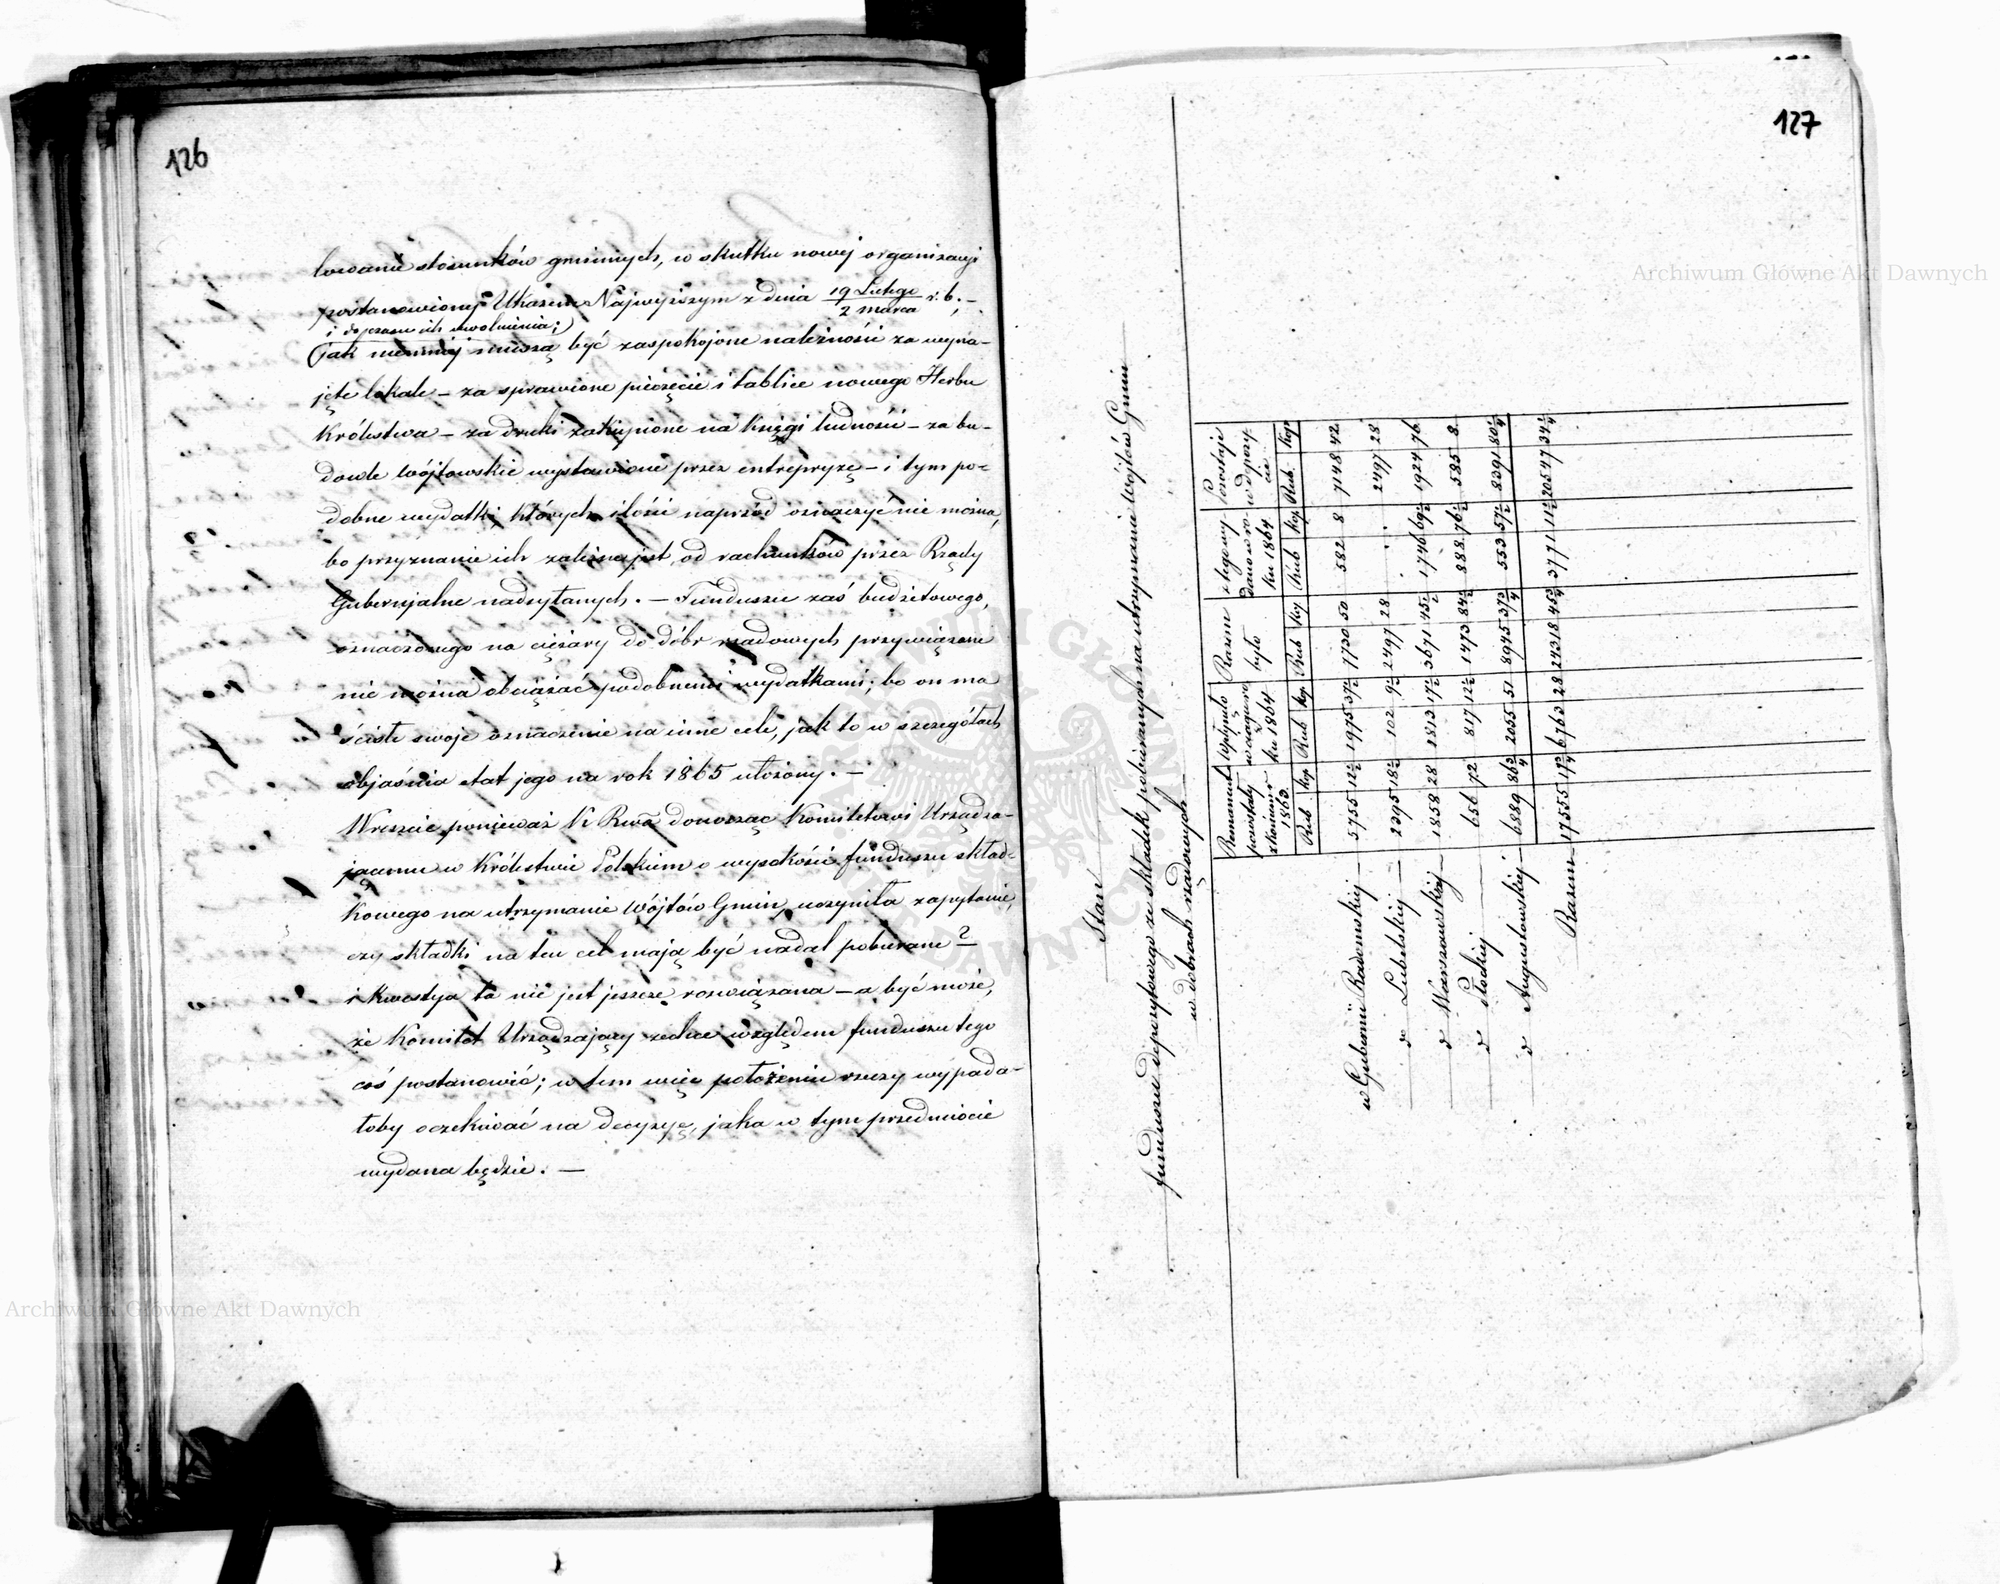 126
lowanie stosunków gminnych, w skutku nowej organizacyi
postanowionej Ukazem Najwyższym z dnia 19 Lutego / 2 Marca r. b.; –
i dopozem ich uwolnienia;)
(jak niemniej muszą być zaspokojone należności za wyna-
jęte lokale – za sprawione pieczęcie i tablice nowego Herbu
Królestwa – za druki zakupione na księgi ludności – za bu-
dowle wójtowskie wystawione przez entrepryzę – i tym po-
dobne wydatki, których ilości naprzód oznaczyć nie można,
bo przyznanie ich zależne jest, od rachunków przez Rządy
Gubernjalne nadsyłanych. – Funduszu zaś budżetowego,
oznaczonego na ciężary do dóbr rządowych przywiązane
nie można obciążać podobnemi wydatkami; bo on ma
ściśle swoje oznaczenie na inne cele, jak to w szczegółach
objaśnia etat jego na rok 1865 ułożony. –
Wreszcie, ponieważ K Rwa donosząc Komitetowi Urządza-
jącemu w Królestwie Polskim o wysokości funduszu skład-
kowego na utrzymanie Wójtów Gmin, uczyniła zapytanie,
czy składki na ten cel mają być nadal pobierane?
i kwestya ta nie jest jeszcze rozwiązana – a być może,
że Komitet Urządzający zechce względem funduszu tego
coś postanowić; w tem więc położeniu rzeczy wypada-
łoby oczekiwać na decyzyę, jaka w tym przedmiocie
wydana będzie. –
127
Stan
funduszu depozytowego ze składek pobieranych na utrzymanie Wójtów Gmin
w dobrach rządowych
Remanent pozostały z końcem r. 1863 Rub. kop.
Wpłynęło w ciągu roku 1864 Rub kop.
Razem było Rub kop
z tego wydano w roku 1864 Rub kop
Pozostaje w depozycie Rub. kop
w Gubernii Radomskiej – 5755 12½ 1975 37½ 7730 50 582 8 7148 42
d° Lubelskiej – 2395 18½ 102 9½ 2497 28 . . 2497 28
d° Warszawskiej – 1858 28 1813 17½ 3671 45½ 1746 69½ 1924 76
d° Płockiej 656 72 817 12½ 1473 84½ 888 76½ 585 8
d° Augustowskiej – 6889 86¾ 2055 51 8945 37¾ 553 57½ 8391 80¼
Razem – 17555 17¾ 6763 28 24318 45¾ 3771 11½ 20547 34¼
Archiwum Główne Akt Dawnych
Archiwum Główne Akt Dawnych
ARCHIWUM GŁÓWNE AKT DAWNYCH